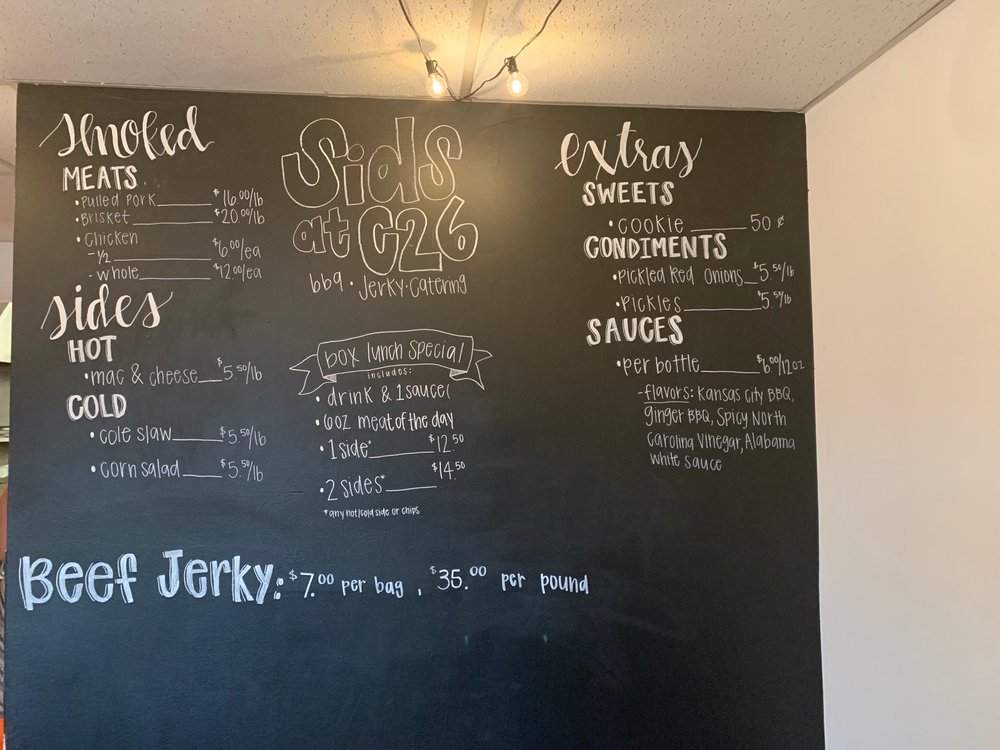 Smoked
MEATS
• Pulled Pork $16.00/lb
• Brisket $20.00/lb
• Chicken
- 1/2 $6.00/ea
- whole $12.00/ea
sides
HOT
• mac & cheese $5.50/lb
COLD
• cole slaw $5.50/lb
• corn salad $5.50/lb
Sids
at C26
bbq • Jerky • Catering
box lunch special
includes:
• drink & 1 sauce
• 6oz meat of the day
• 1 side* $12.50
• 2 sides* $14.50
*any hot/cold side or chips
extras
SWEETS
• cookie 50 ¢
CONDIMENTS
• Pickled Red Onions $5.50/lb
• Pickles $5.50/lb
SAUCES
• per bottle $6.00/12oz
- flavors: Kansas City BBQ,
ginger BBQ, Spicy North
Carolina Vinegar, Alabama
white sauce
Beef Jerky: $7.00 per bag , $35.00 per pound